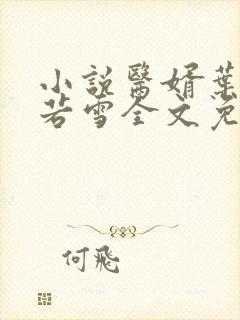 小說醫婿葉
若雪全文免
何飛